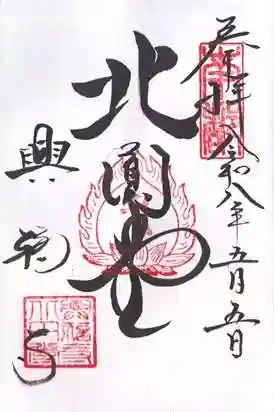 奉拝 令和八年五月五日
北円堂
興福寺